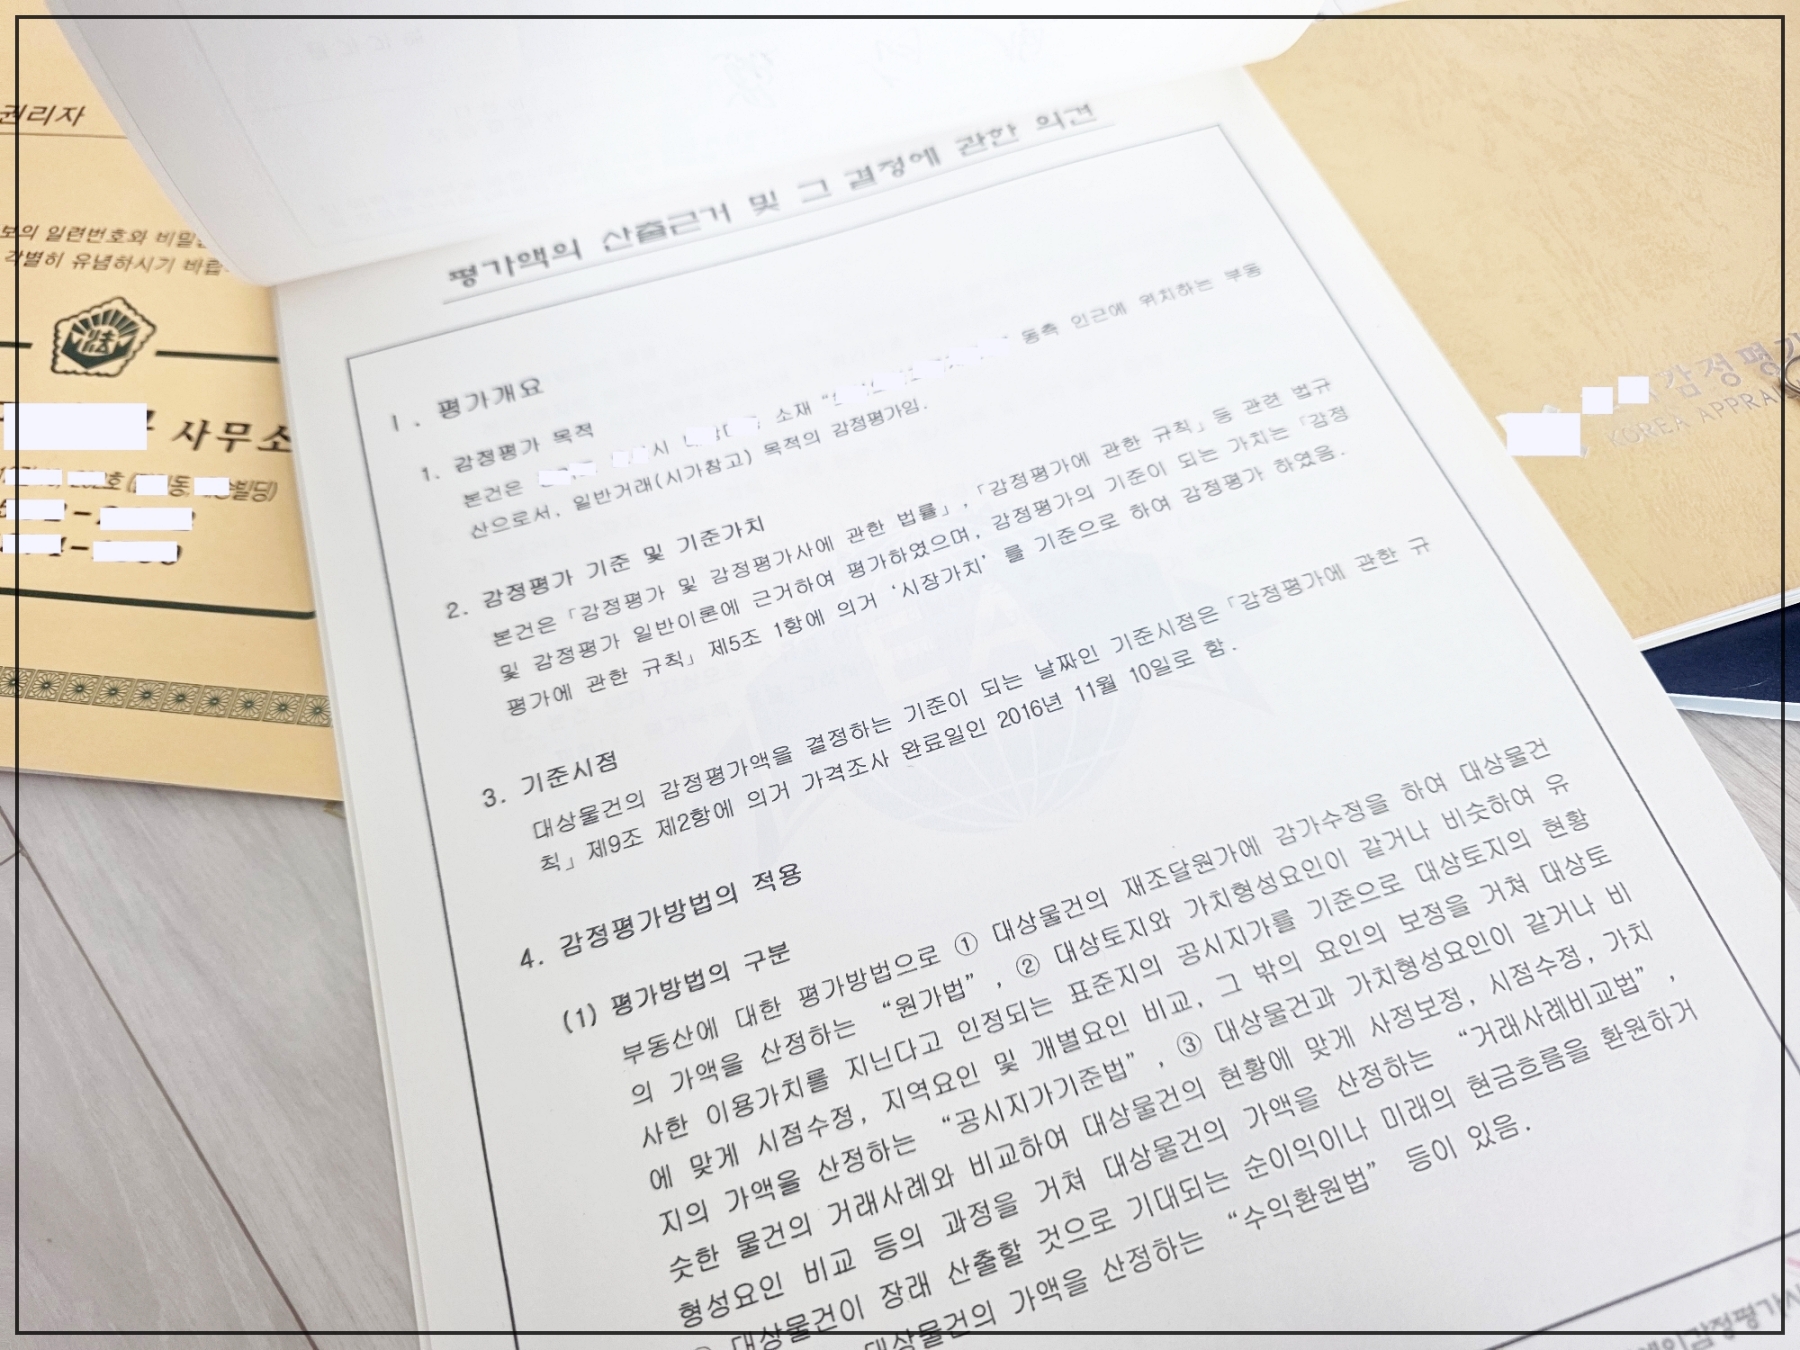 권리자
보의 일련번호와 비밀
각별히 유념하시기 바랍
法
사무소
평가액의 산출근거 및 그 결정에 관한 의견
Ⅰ. 평가개요
1. 감정평가 목적
본건은 시 소재 “ 동측 인근에 위치하는 부동
산으로서, 일반거래(시가참고) 목적의 감정평가임.
2. 감정평가 기준 및 기준가치
본건은 「감정평가 및 감정평가사에 관한 법률」, 「감정평가에 관한 규칙」 등 관련 법규
및 감정평가 일반이론에 근거하여 평가하였으며, 감정평가의 기준이 되는 가치는 「감정
평가에 관한 규칙」 제5조 1항에 의거 ‘시장가치’ 를 기준으로 하여 감정평가 하였음.
3. 기준시점
대상물건의 감정평가액을 결정하는 기준이 되는 날짜인 기준시점은 「감정평가에 관한 규
칙」 제9조 제2항에 의거 가격조사 완료일인 2016년 11월 10일로 함.
4. 감정평가방법의 적용
(1) 평가방법의 구분
부동산에 대한 평가방법으로 ① 대상물건의 재조달원가에 감가수정을 하여 대상물건
의 가액을 산정하는 “원가법” , ② 대상토지와 가치형성요인이 같거나 비슷하여 유
사한 이용가치를 지닌다고 인정되는 표준지의 공시지가를 기준으로 대상토지의 현황
에 맞게 시점수정, 지역요인 및 개별요인 비교, 그 밖의 요인의 보정을 거쳐 대상토
지의 가액을 산정하는 “공시지가기준법” , ③ 대상물건과 가치형성요인이 같거나 비
슷한 물건의 거래사례와 비교하여 대상물건의 현황에 맞게 사정보정, 시점수정, 가치
형성요인 비교 등의 과정을 거쳐 대상물건의 가액을 산정하는 “거래사례비교법” ,
대상물건이 장래 산출할 것으로 기대되는 순이익이나 미래의 현금흐름을 환원하거
대상물건의 가액을 산정하는 “수익환원법” 등이 있음.
감정평가
KOREA APPRAI